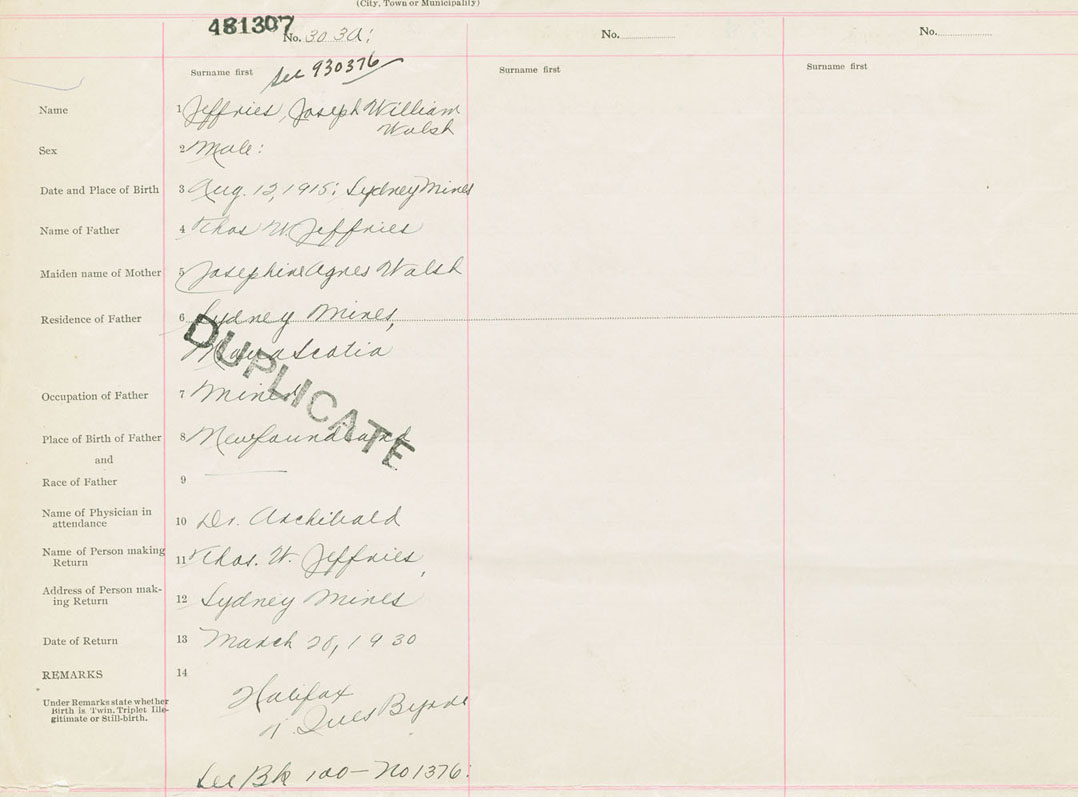 (City, Town or Municipality)
481307
No. 303a: No. No.
See 930376
Surname first Surname first Surname first
Name 1 Jeffries, Joseph William
Walsh
Sex 2 Male:
Date and Place of Birth 3 Aug. 12, 1915; Sydney Mines
Name of Father 4 Thos W. Jeffries
Maiden name of Mother 5 Josephine Agnes Walsh
Residence of Father 6 Sydney Mines,
Nova Scotia
DUPLICATE
Occupation of Father 7 Miner
Place of Birth of Father 8 Newfoundland
and
Race of Father 9
Name of Physician in
attendance 10 Dr. Archibald
Name of Person making
Return 11 Thos. W. Jeffries,
Address of Person mak-
ing Return 12 Sydney Mines
Date of Return 13 March 20, 1930
REMARKS 14
Under Remarks state whether
Birth is Twin, Triplet Ille-
gitimate or Still-birth.
Halifax
Byrne
See Bk 100 - No 1376: